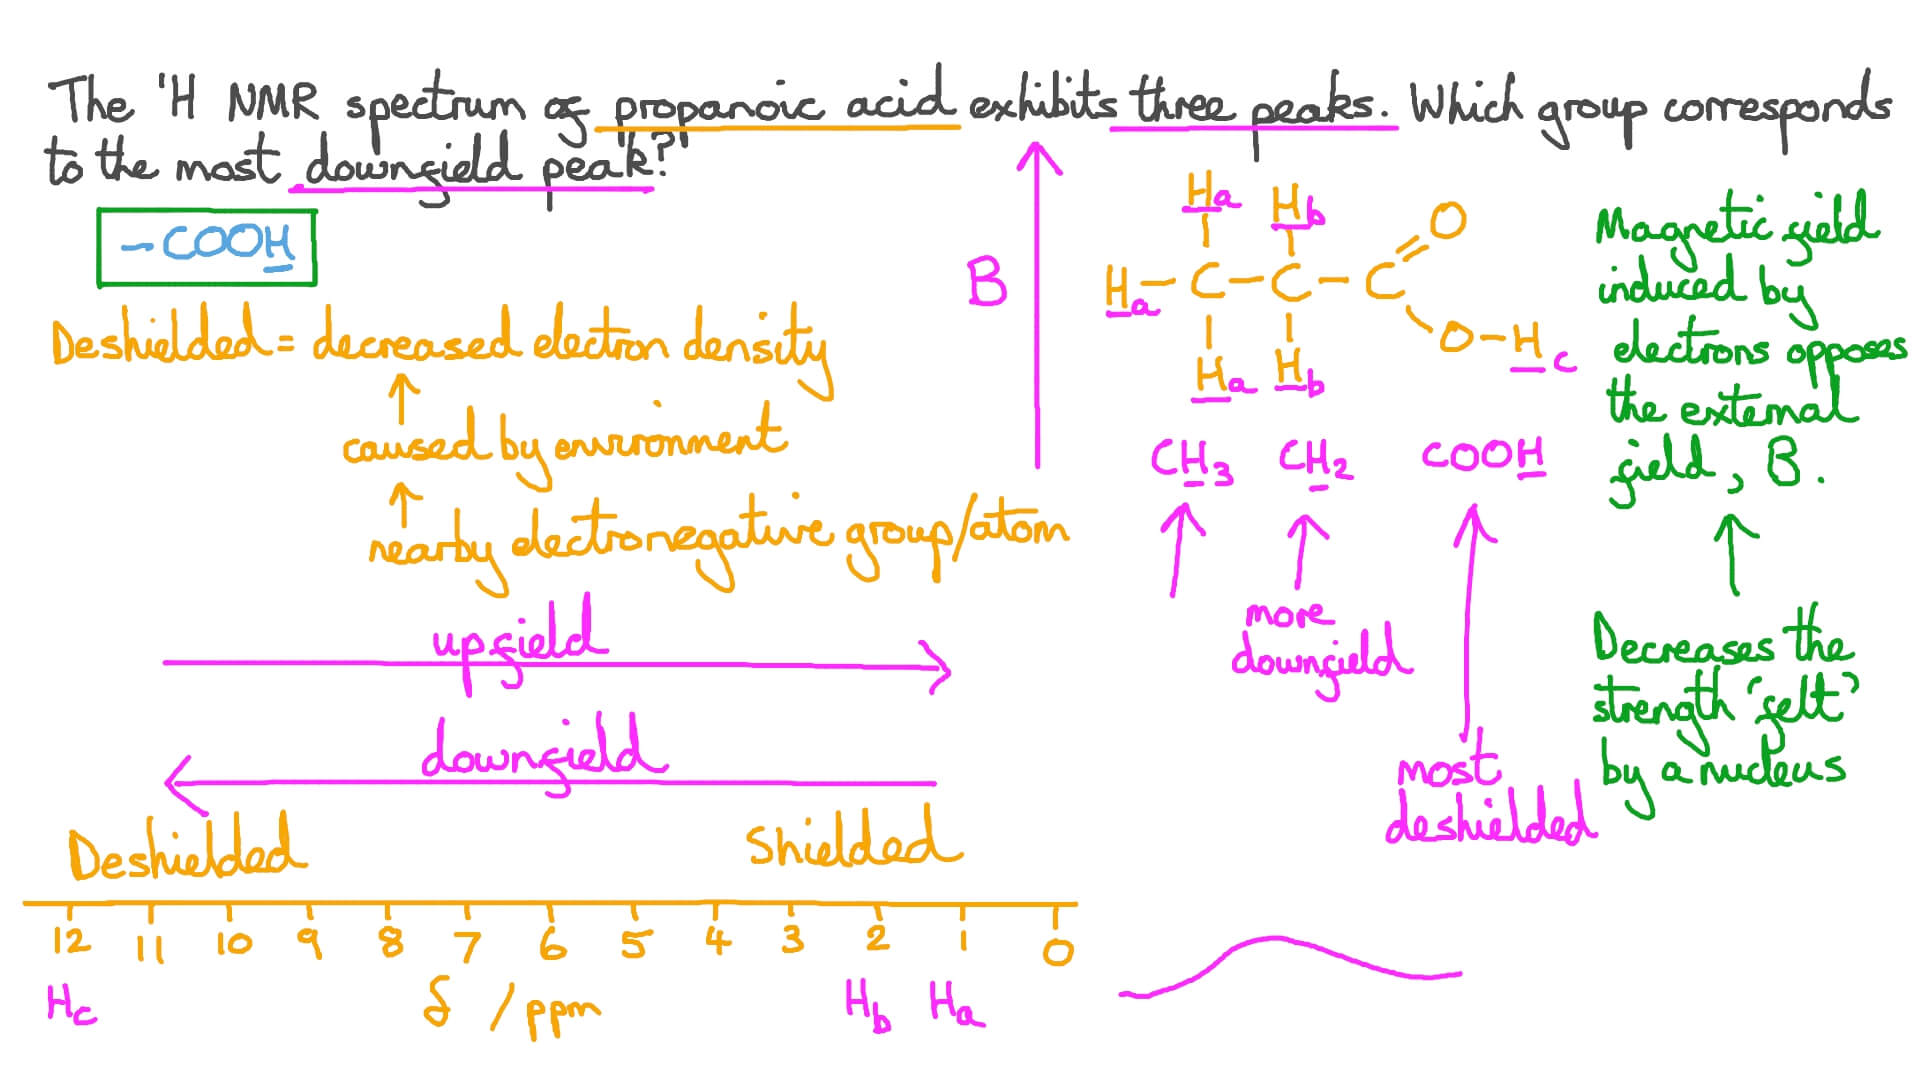 The ¹H NMR spectrum of propanoic acid exhibits three peaks. Which group corresponds
to the most downfield peak?"
-COOH
Deshielded = decreased electron density
caused by environment
nearby electronegative group/atom
upfield
downfield
Deshielded
Shielded
12 11 10 9 8 7 6 5 4 3 2 1 0
Hc
δ /ppm
Hb
Ha
B
Ha Hb O
Ha-C-C-C
O-Hc
Ha Hb
CH3 CH2 COOH
more
downfield
most
deshielded
Magnetic field
induced by
electrons opposes
the external
field, B.
Decreases the
strength 'felt'
by a nucleus